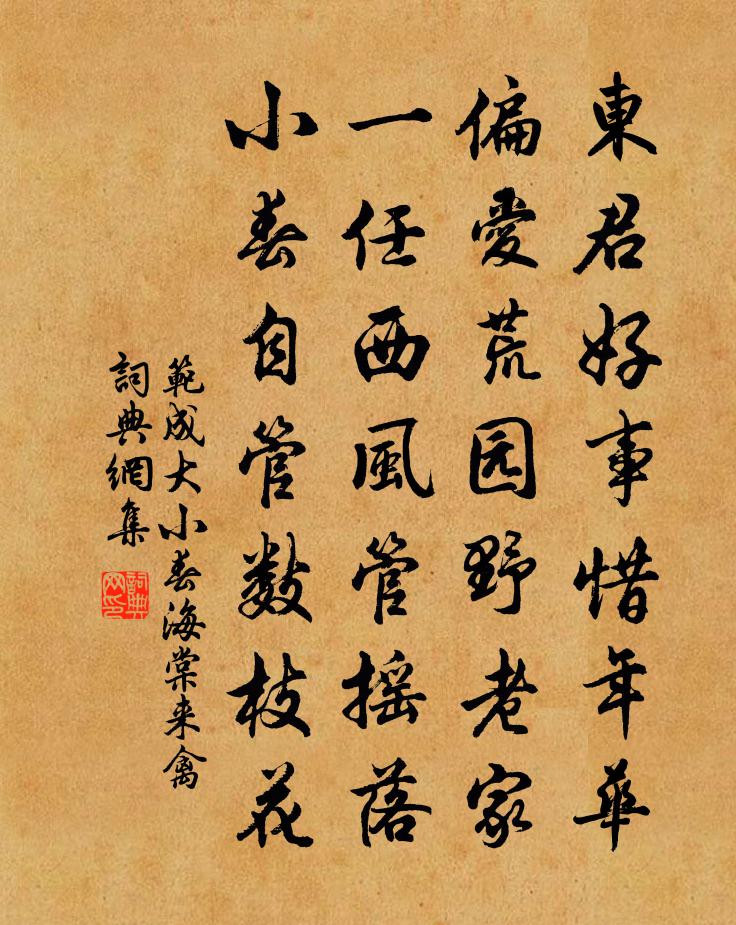 東君好事惜年華
偏愛荒园野老家
一任西風管摇落
小春自管數枝花
範成大小春海棠来禽
詞典網集
詞典网印